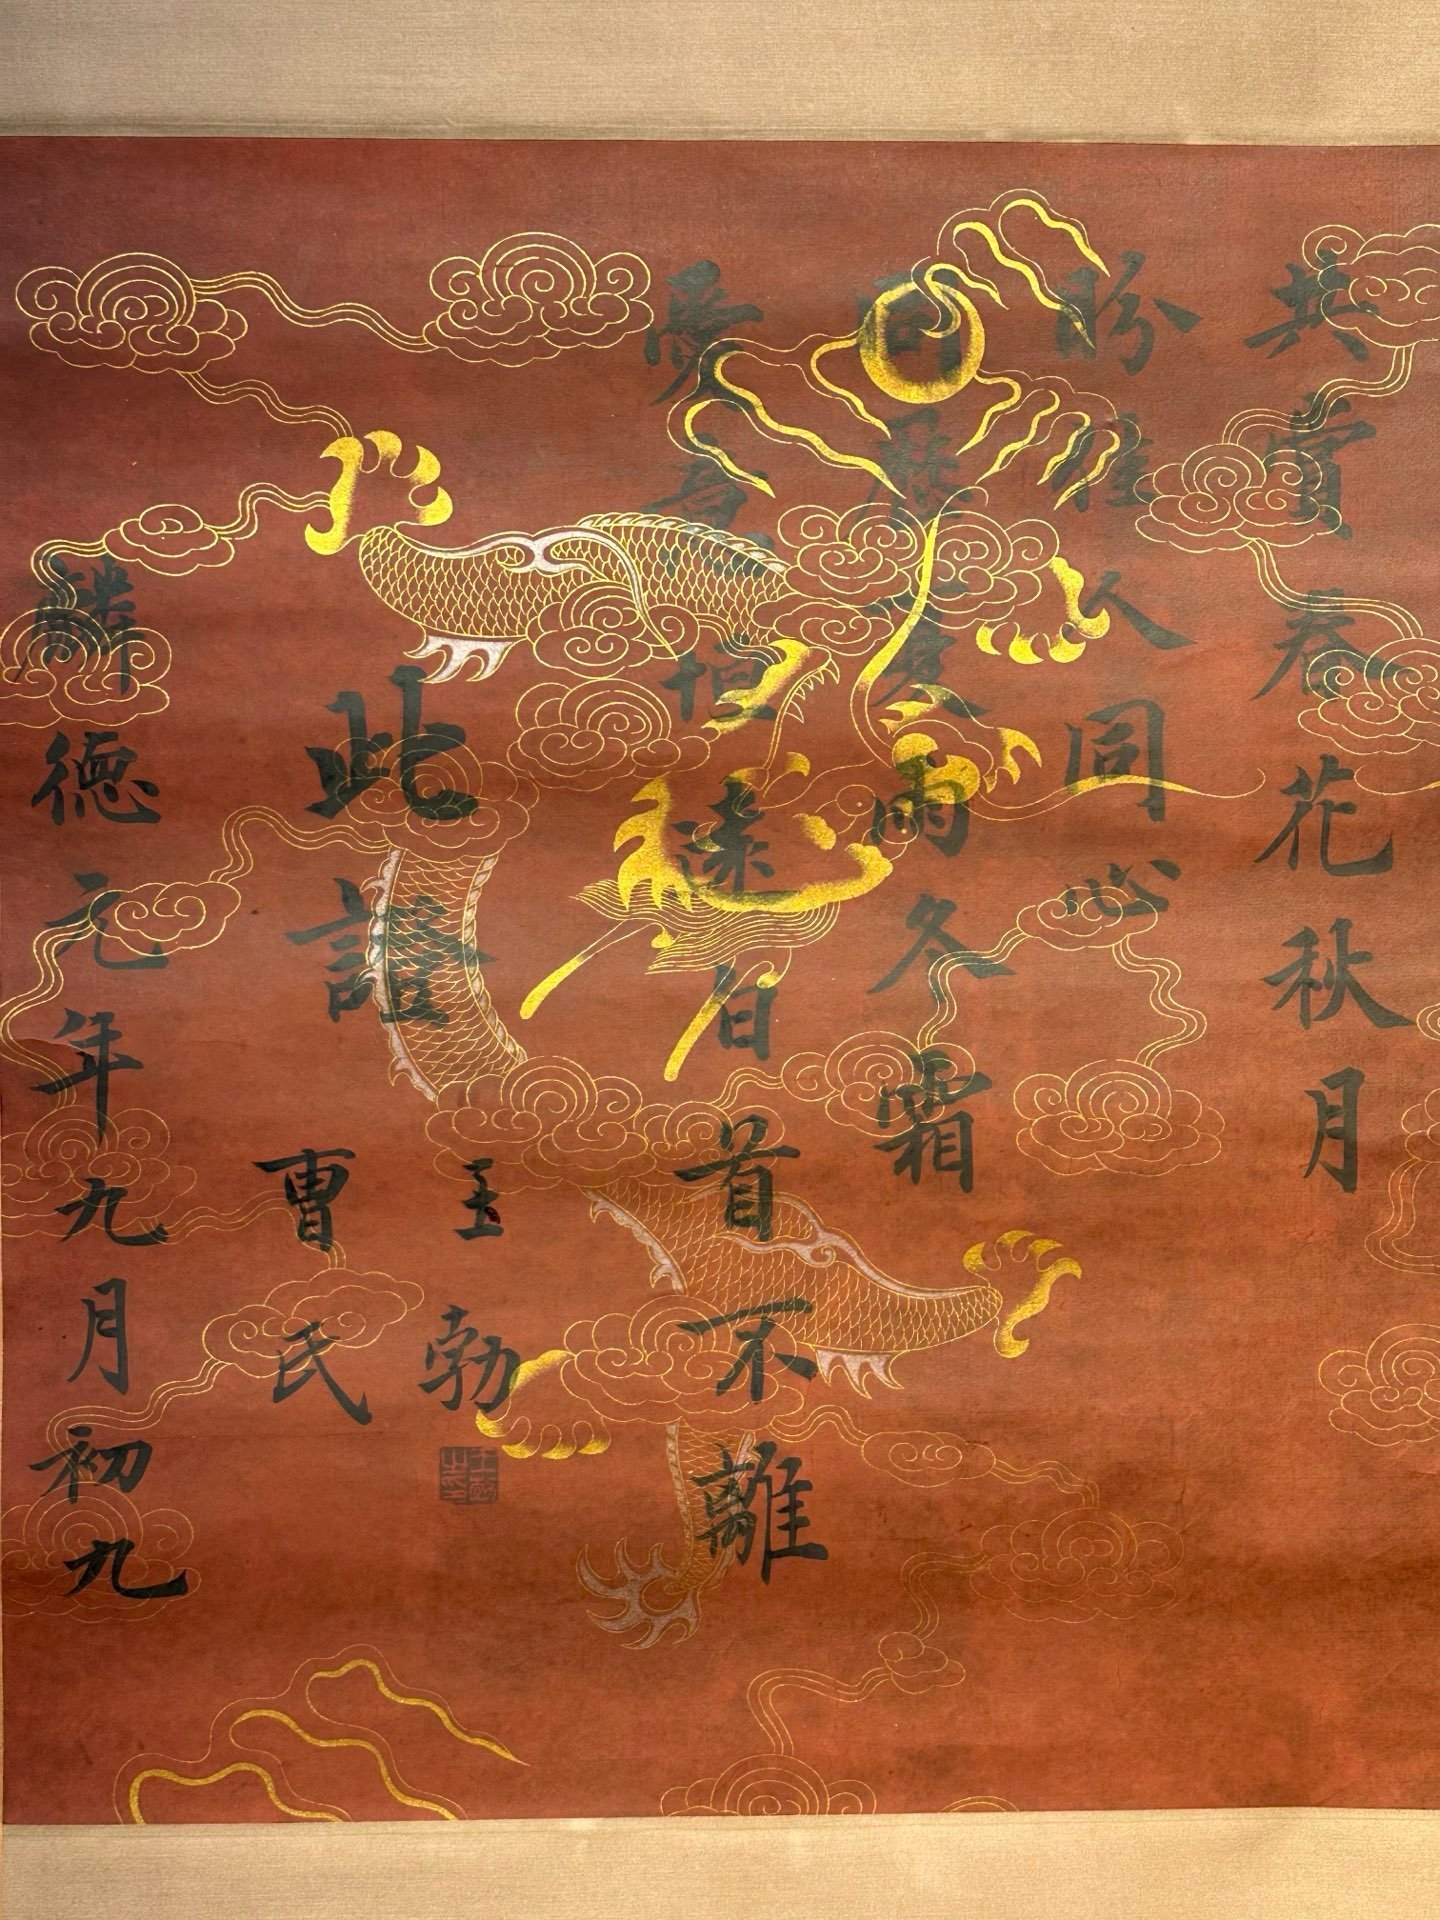 共賞春花秋月
盼惟人同心
同歷夏雨冬霜
愛意恒遠白首不離
此證
王勃
曹氏
麟德元年九月初九